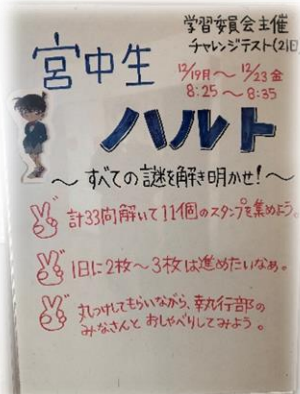 学習委員会主催
チャレンジテスト(2)日
宮中生
12/19月～12/23金
8:25～8:35
ハルト
～すべての謎を解き明かせ!～
計33問解いて11個のスタンプを集めよう。
1日に2枚～3枚は進めたいなぁ。
丸つけしてもらいながら、執行部の
みなさんとおしゃべりしてみよう。